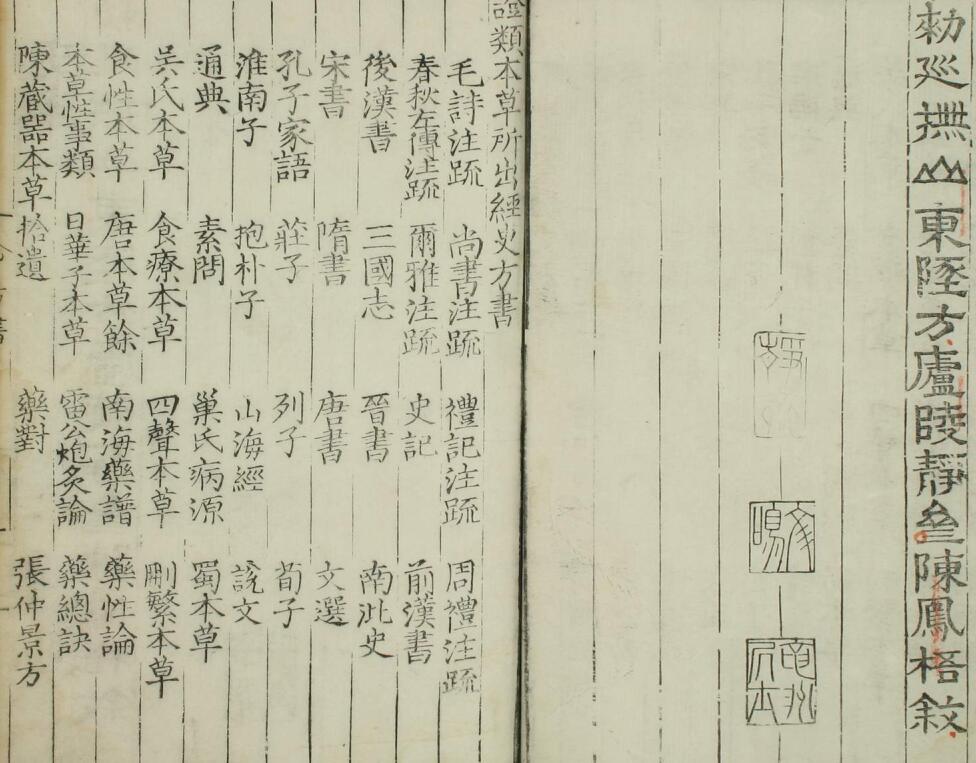 勑巡撫山東墬方廬陵靜亝陳鳳梧敘
證類本草所出經史方書
毛詩注疏 尚書注疏 禮記注疏 周禮注疏
春秋左傳注疏 爾雅注疏 史記 前漢書
後漢書 三國志 晉書 南北史
宋書 隋書 唐書 文選
孔子家語 莊子 列子 荀子
淮南子 抱朴子 山海經 說文
通典 素問 巢氏病源 蜀本草
吳氏本草 食療本草 四聲本草 刪繁本草
食性本草 唐本草餘 南海藥譜 藥性論
本草性事類 日華子本草 雷公炮炙論 藥總訣
陳藏器本草拾遺 藥對 張仲景方